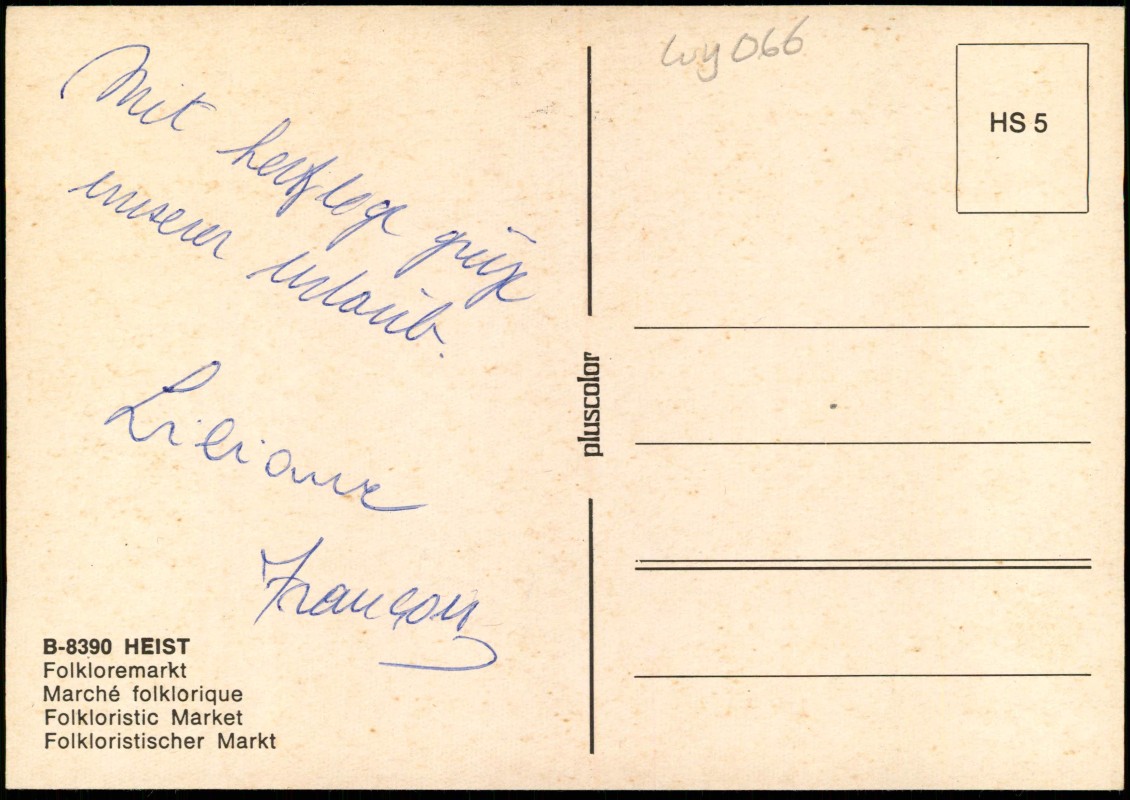 Mit herzloge grüße
unserer Urlaub.
Liliane
Françou
B-8390 HEIST
Folkloremarkt
Marché folklorique
Folkloristic Market
Folkloristischer Markt
pluscolor
wy 066
HS 5